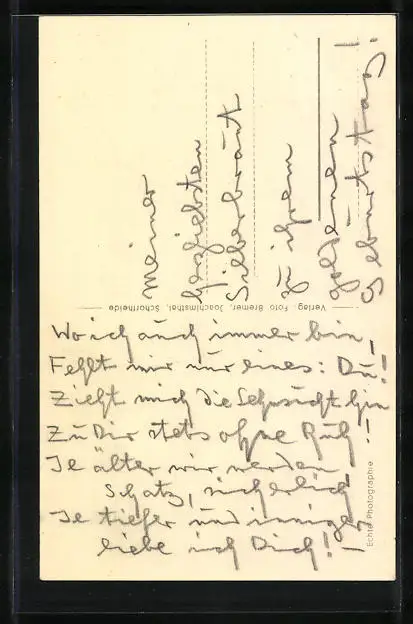 Meiner
herzliebsten
Silberbraut
zu ihrem
goldenen
Geburtstag!
Verlag Foto Bremer, Joachimsthal, Schorfheide
Wo ich auch immer bin,
Fehlt mir nur eines: Du!
Zieht mich die Sehnsucht hin
Zu Dir stets ohne Ruh!
Je älter wir werden,
Schatz, sicherlich
Je tiefer und inniger
liebe ich Dich! —
Echte Photographie